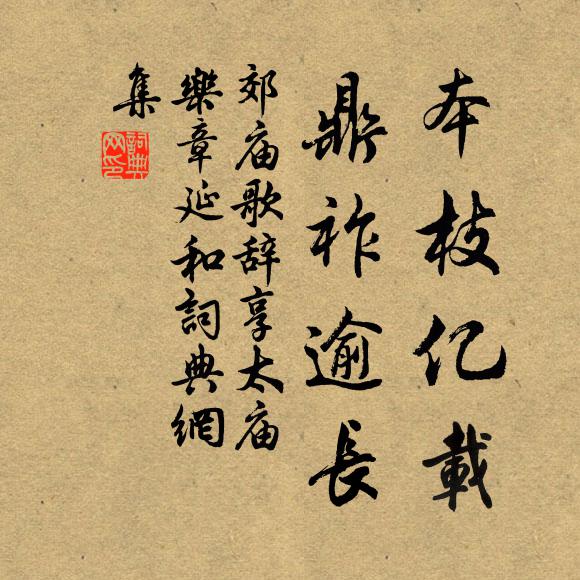 本枝亿載
鼎祚逾長
郊庙歌辞享太庙
樂章延和詞典網
集
詞典
网印